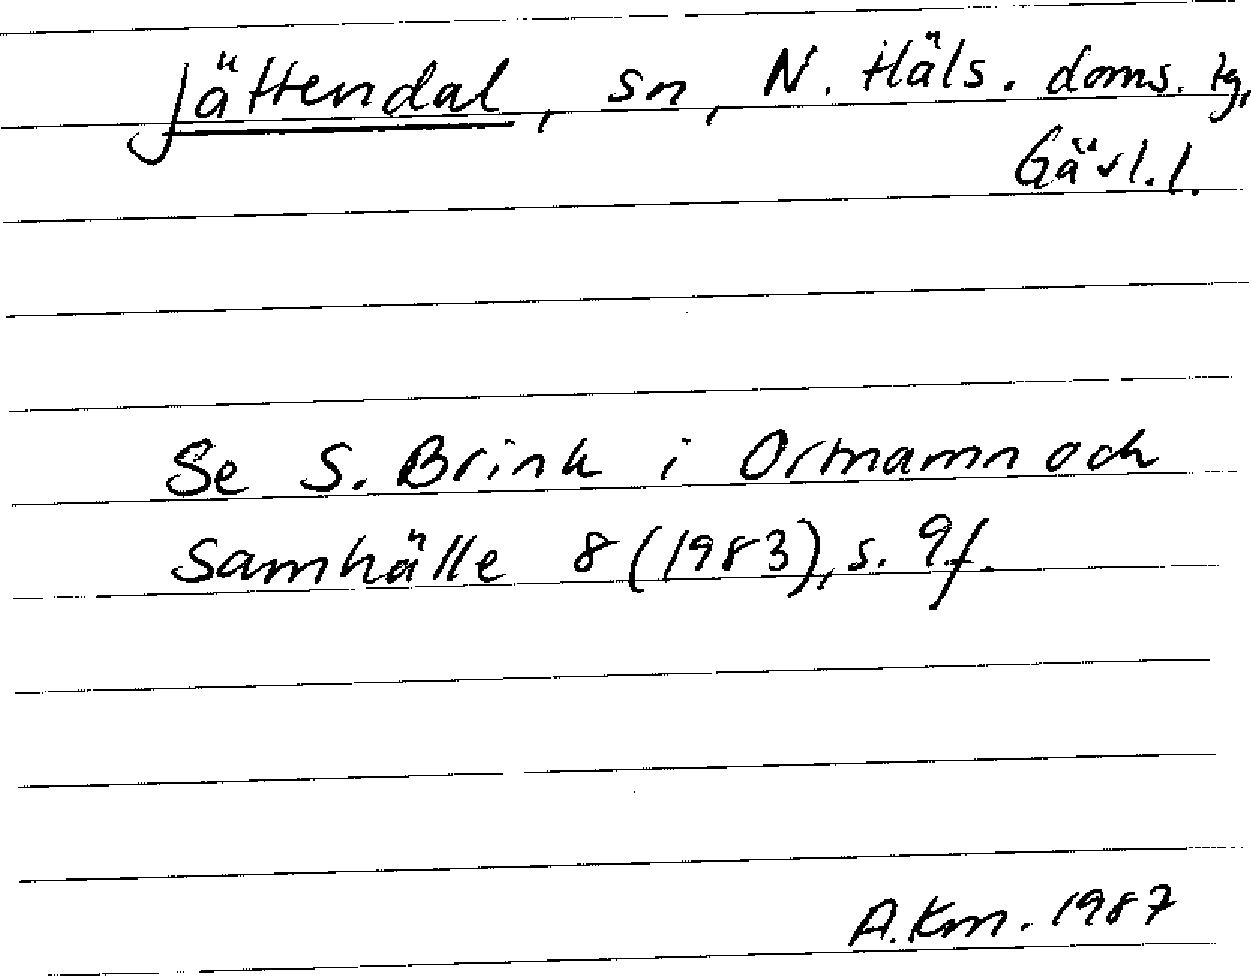 Jättendal, sn, N. Häls. doms. tg,
Gävl. l.
Se S. Brink i Ortnamn och
Samhälle 8 (1983), s. 9f.
A. Km. 1987